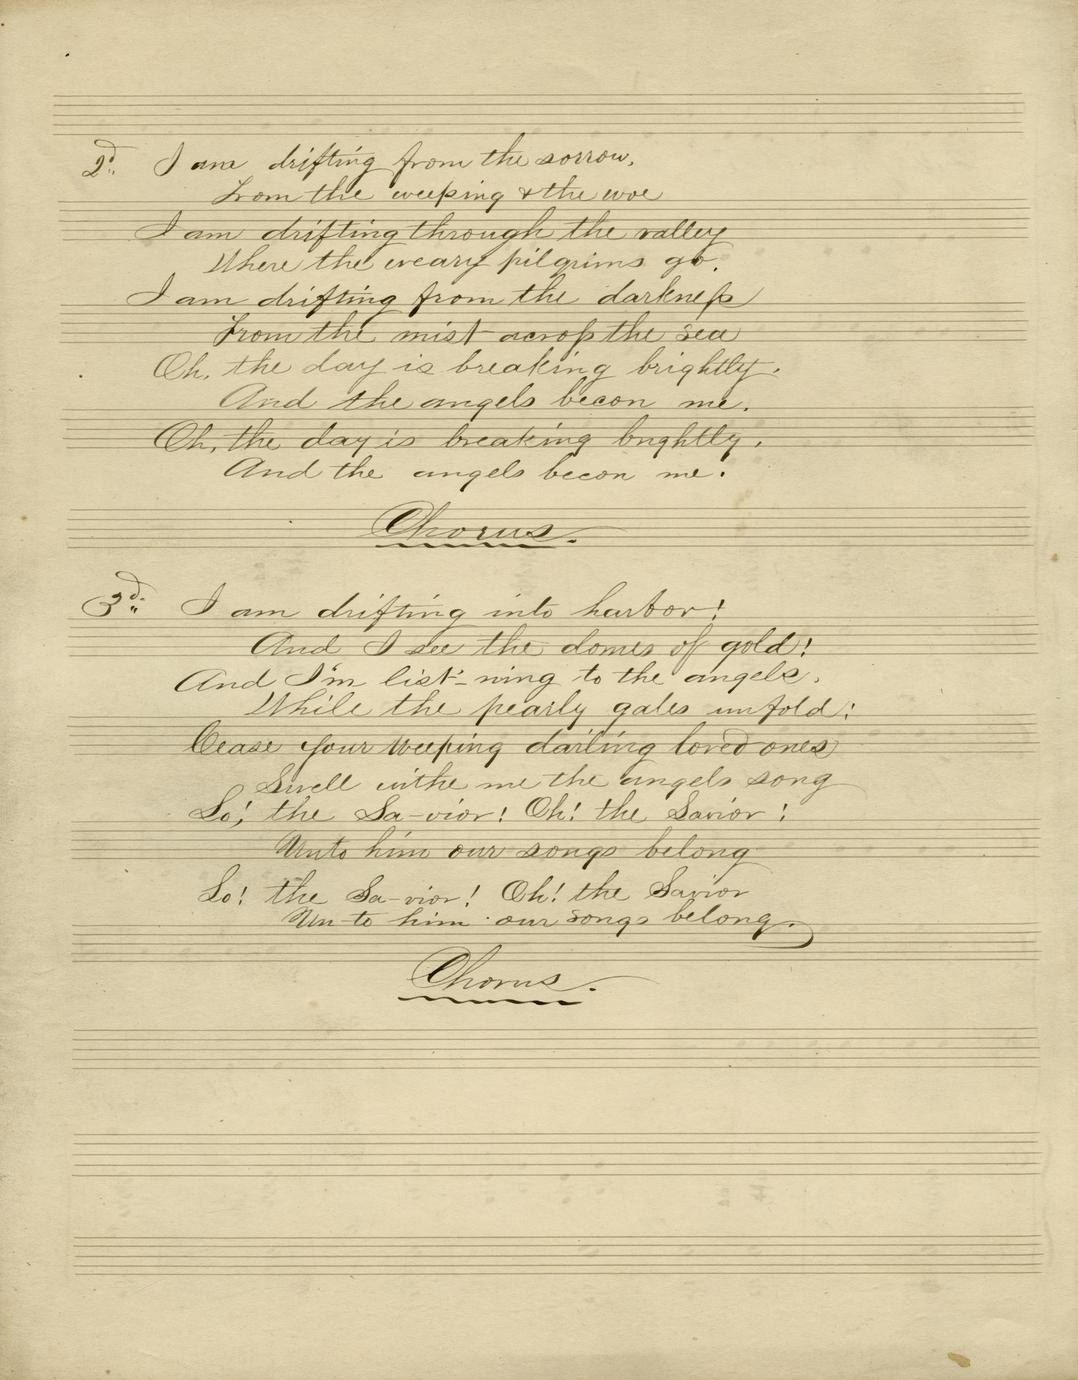 2d. I am drifting from the sorrow,
From the weeping & the woe
I am drifting through the valley
Where the weary pilgrims go.
I am drifting from the darkness
From the mist across the sea
Oh, the day is breaking brightly.
And the angels becon me.
Oh, the day is breaking brightly.
And the angels becon me.
Chorus.
3d. I am drifting into harbor!
And I see the domes of gold!
And I'm list'-ning to the angels.
While the pearly gates unfold!
Cease your weeping darling loved ones
Swell withe me the angels song
Lo! the Sa-vior! Oh! the Savior!
Unto him our songs belong
Lo! the Sa-vior! Oh! the Savior
Un-to him our songs belong.
Chorus.